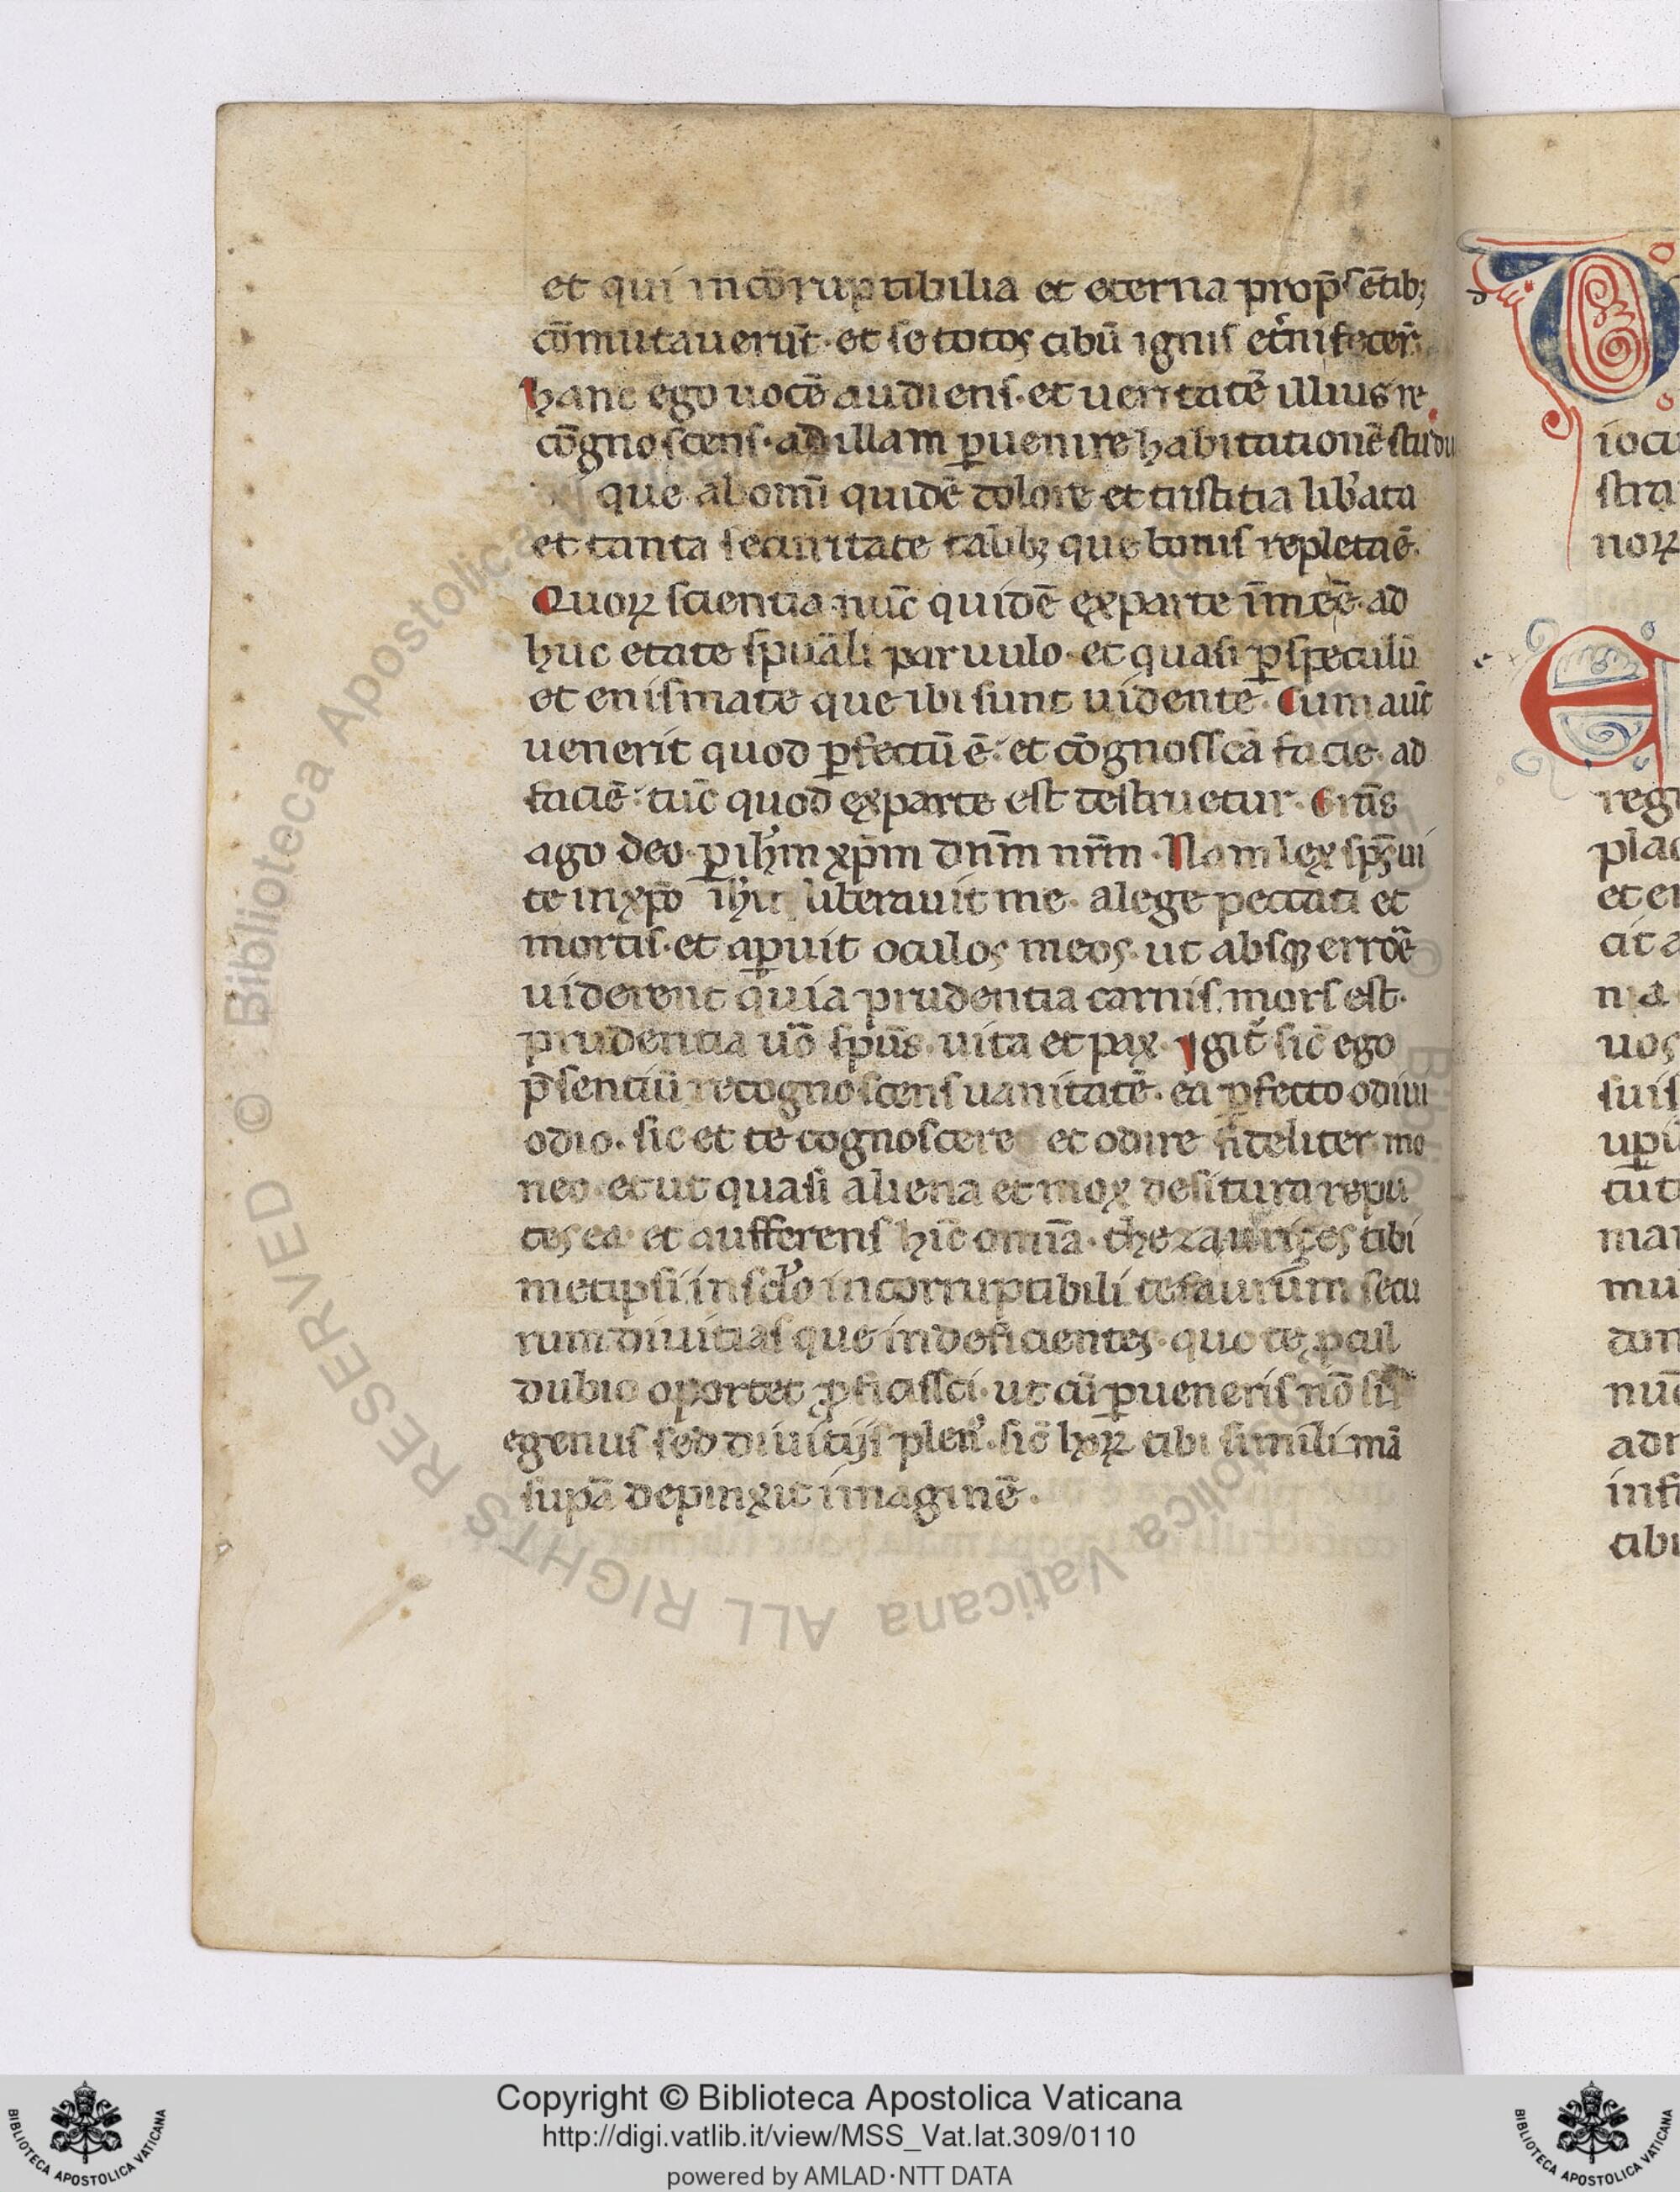 et qui incōruptibilia et eterna prop̄sētibꝫ
cōmutauerūt· et se totos cibū ignis et̄ni fecer̄
hanc ego uocē audiens· et ueritatē illius re
cōgnoscens· ad illam ꝑuenire habitationē studui
que ab omī quidē dolore et tristitia lib̄ata
et tanta securitate talibꝫ que bonis repleta ē·
Quoꝝ scientia nūc quidē ex parte īm eē· ad
huc etate spūali paruulo· et quasi ꝑ speculū
et enismate que ibi sunt uidente· Cum aūt
uenerit quod ꝑfectū ē· et cōgnosscā facie· ad
faciē· tūc quod ex parte est destruetur· Grās
ago deo· ꝑ ihm̄ xp̄m dnm̄ nrm̄· Nam lex sps̄ ui
te in xp̄o ihu liberauit me· a lege peccati et
mortis· et aꝑuit oculos meos· ut absqꝫ errōe
uiderent quia prudentia carnis mors est·
prudentia uō spūs· uita et pax· Igit̄ sic̄ ego
p̄sentiū recognoscens uanitatē· ea ꝑfecto odiui
odio· sic et te cognoscere et odire fideliter mo
neo· et ut quasi aliena et mox desitura repu
tes ea· et aufferens hīc omīa· thezaurizes tibi
metipsi in sclo incorruptibili tesaurūm secu
rum diuitias que indeficientes· quo te ꝓcul
dubio oportet ꝓficissci· ut cū ꝑueneris nō sis
egenus sed diuitijs plen᷒· sic̄ hoꝝ tibi simili mā
supā depinxit imaginē·
iocu
stra
noꝝ
regn
plac
et er
cit a
nia
uos
suis
uꝑi
tut
man
mul
don
nūc
adn
infi
tibi
© Biblioteca Apostolica Vaticana ALL RIGHTS RESERVED
Copyright © Biblioteca Apostolica Vaticana
http://digi.vatlib.it/view/MSS_Vat.lat.309/0110
powered by AMLAD·NTT DATA
BIBLIOTECA APOSTOLICA VATICANA
BIBLIOTECA APOSTOLICA VATICANA